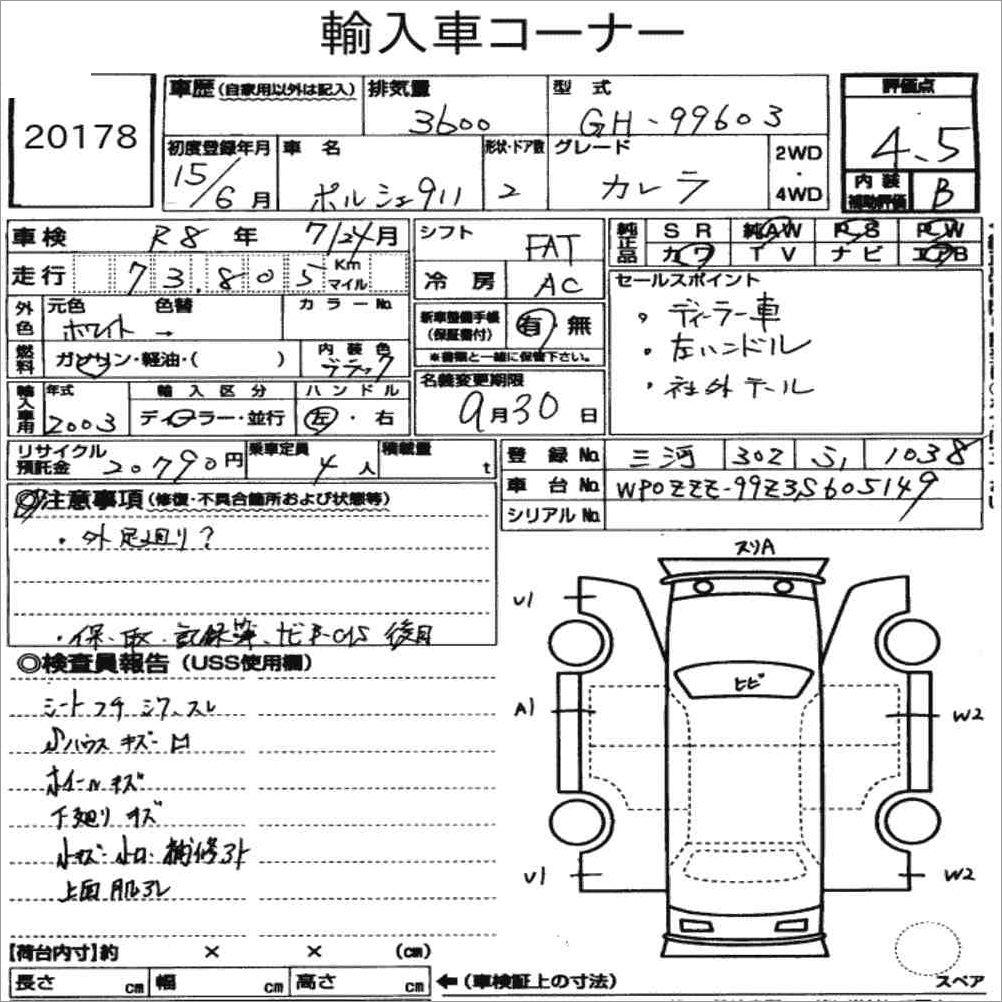 輸入車コーナー
20178
車歴(自家用以外は記入) 排気量 3600 型式 GH-99603
評価点 4.5
初度登録年月 15/6月 車名 ポルシェ911 形状・ドア数 2 グレード カレラ 2WD・4WD
内装補助評価 B
車検 R8年 7/24月 シフト FAT 純正品 SR 純AW PS PW
走行 73,805 Km マイル 冷房 AC カワ TV ナビ エアB
外色 元色 ホワイト 色替 → カラーNo.
新車整備手帳(保証書付) 有・無
※書類と一緒に保管下さい。
セールスポイント
・ディーラー車
・左ハンドル
・社外テール
燃料 ガソリン・軽油・( ) 内装色 ブラック
名義変更期限 9月30日
輸入車用 年式 2003 輸入区分 ディーラー・並行 ハンドル 左・右
リサイクル預託金 20790円 乗車定員 4人 積載量 t
登録No. 三河 302 1038
車台No. WP0ZZZ-99Z3S605149
シリアルNo.
◎注意事項(修復・不具合箇所および状態等)
・外足廻り?
・保・取・記録簿、ナビR-CIS 後日
◎検査員報告(USS使用欄)
シートコゲ シワ、スレ
ハウス キズ・凹
ホイールキズ
下廻り キズ
小キズ・小凹・補修外
上面 肌アレ
スリA
U1
ヒビ
A1
W2
U1
W2
【荷台内寸】約 × × (cm)
長さ cm 幅 cm 高さ cm ←(車検証上の寸法)
スペア